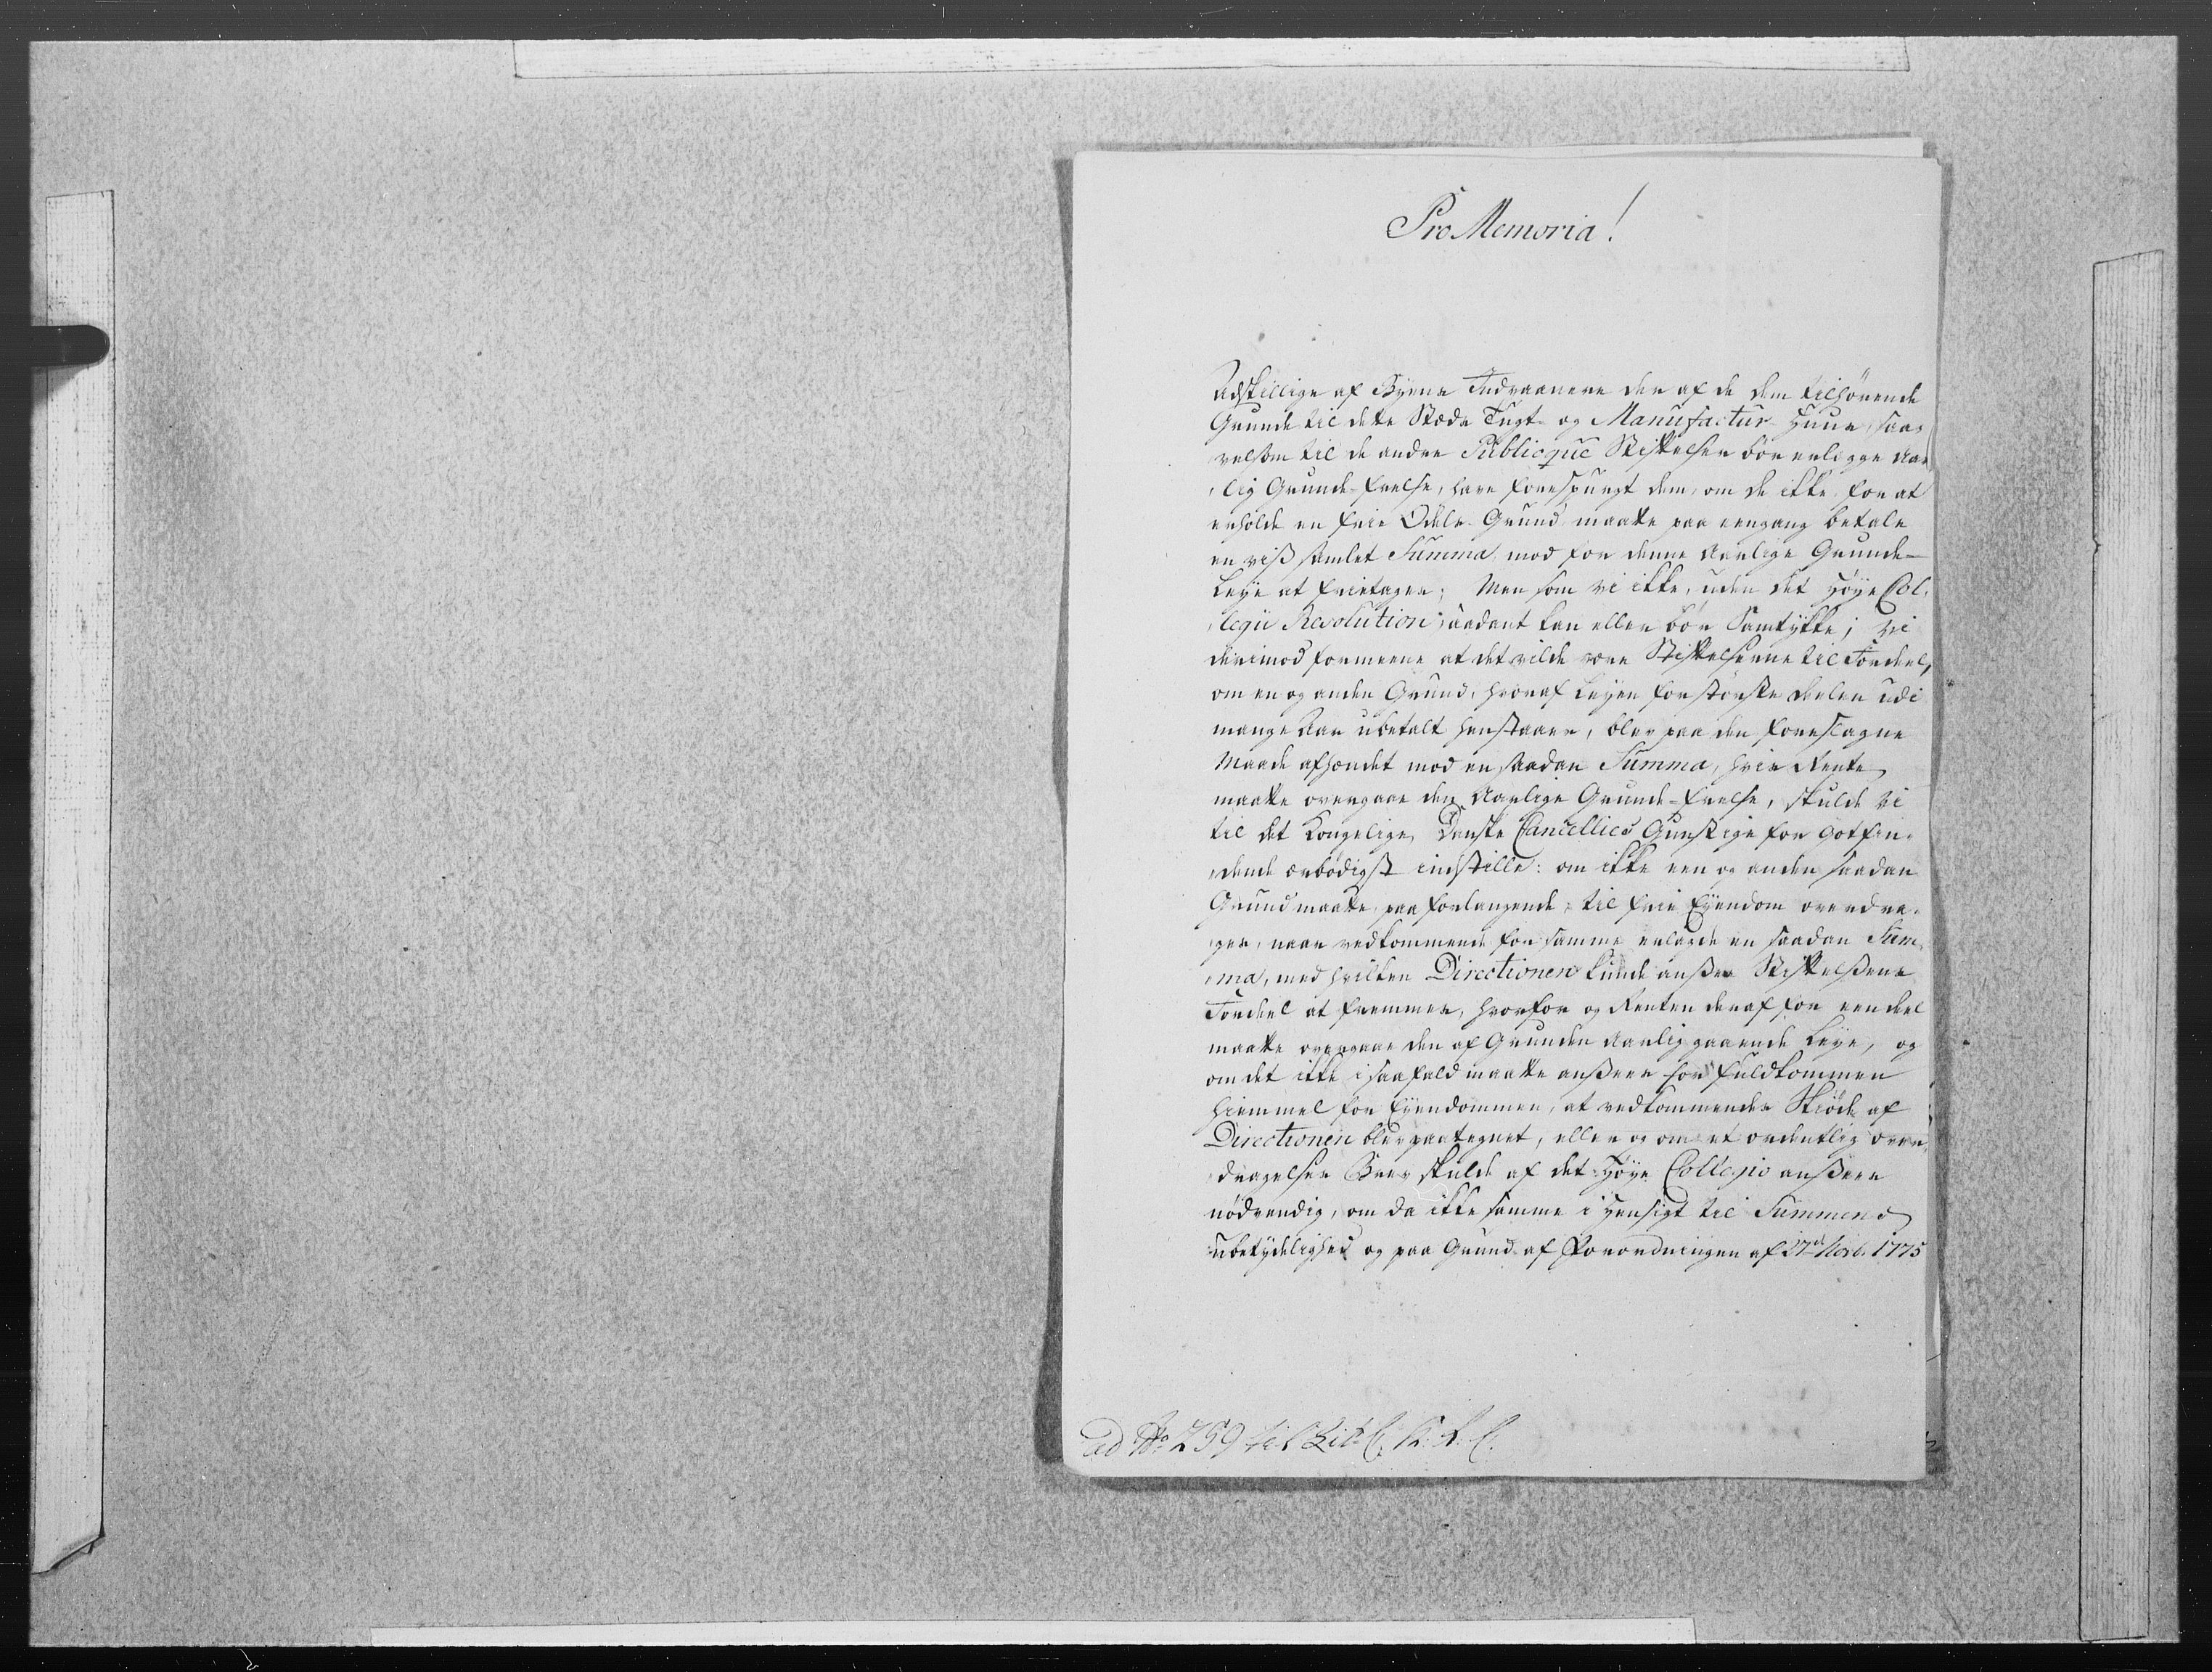 Pro Memoria!
Adskillige af Byens Indvaanere der af de dem tilhørende
Grunde til dette Stæds Tugt- og Manufactur-Huus, saa-
velsom til de andre Publicque Stiftelser bør erlægge Aar-
lig Grunde-frelse, have forespurgt dem, om de ikke, for at
erholde en frie Odels-Grund maatte paa eengang betale
en viss samlet Summa mod for denne Aarlige Grunde-
Leye at frietages; Men som vi ikke, uden det Høye Col-
legii Resolution saadant kan eller bør Samtykke; vi
derimod formeene at det vilde være Stiftelserne til Fordeel,
om en og anden Grund, hvoraf Leyen for største deelen udi
mange Aar ubetalt henstaaer, blev paa den foreslagne
Maade afhændet mod en saadan Summa, hvis Rente
maatte overgaae den Aarlige Grunde-frelse, skulde vi
til det Kongelige Danske Cancellies Gunstige for Gotfin-
dende ærbødigst indstille: om ikke een og anden saadan
Grund maatte paa forlangende til frie Eyendom overdra-
ges, naar vedkommende for samme erlagde en saadan Sum-
ma, med hvilken Directionen kunde ansee Stiftelsens
Fordeel at fremmes, hvorfor og Renten deraf for een deel
maatte overgaae den af Grunden Aarlig gaaende Leye, og
om det ikke i saafald maatte ansees for fuldkommen
Hiemmel for Eyendommen, at vedkommendes Skiøde af
Directionen blev paategnet, eller og om et ordentlig over-
dragelses Brev skulde af det Høye Collegio ansees
nødvendig, om da ikke samme i Hensigt til Summens
ubetydelighed og paa Grund af Forordningen af 27d Novb. 1775
ad No 259 til Lit C. K. A. C.